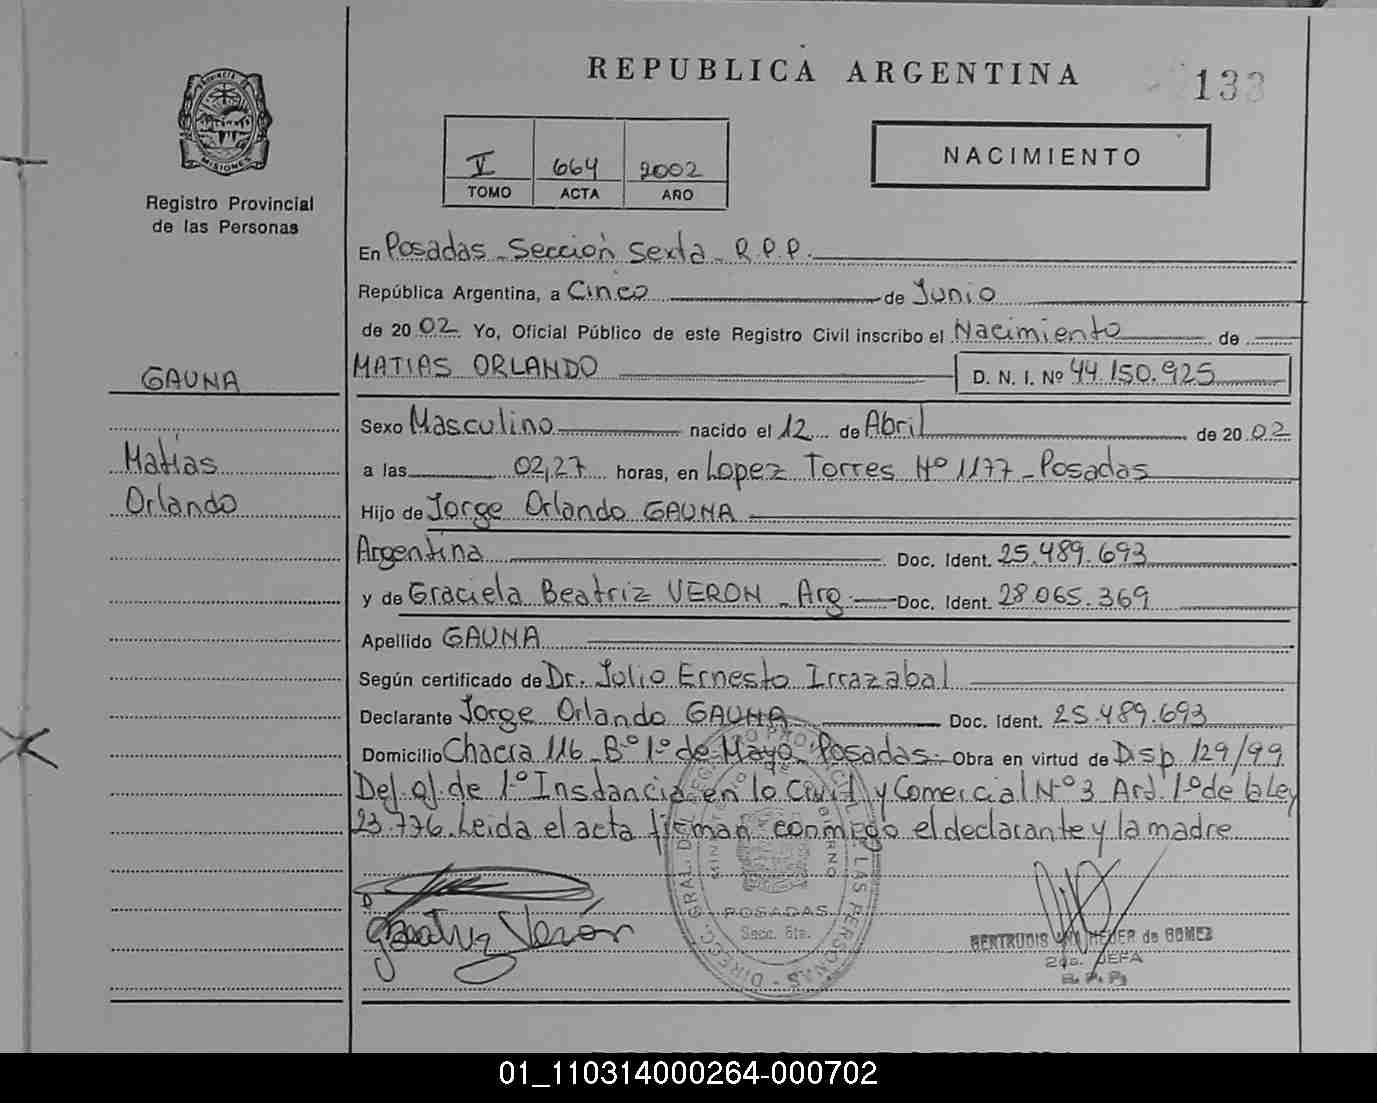 REPUBLICA ARGENTINA
133
PROVINCIA DE
MISIONES
Registro Provincial
de las Personas
V 664 2002
TOMO ACTA AÑO
NACIMIENTO
En Posadas - Sección Sexta - R.P.P.
República Argentina, a Cinco de Junio
de 2002 Yo, Oficial Público de este Registro Civil inscribo el Nacimiento de
MATIAS ORLANDO D. N. I. Nº 44.150.925
GAUNA
Matias
Orlando
Sexo Masculino nacido el 12 de Abril de 2002
a las 02,27 horas, en Lopez Torres Nº 1177 - Posadas
Hijo de Jorge Orlando GAUNA
Argentina Doc. Ident. 25.489.693
y de Graciela Beatriz VERON - Arg. Doc. Ident. 28.065.369
Apellido GAUNA
Según certificado de Dr. Julio Ernesto Irrazabal
Declarante Jorge Orlando GAUNA Doc. Ident. 25.489.693
Domicilio Chacra 116 - Bº 1º de Mayo - Posadas - Obra en virtud de Disp 129/99
Del J. de 1º Instancia en lo Civil y Comercial Nº 3 Art. 1º de la Ley
23.776. Leida el acta firman conmigo el declarante y la madre
Beatriz Verón
POSADAS
Secc. 6ta.
GERTRUDIS de GOMEZ
2da. JEFA
R.P.P.
01_110314000264-000702